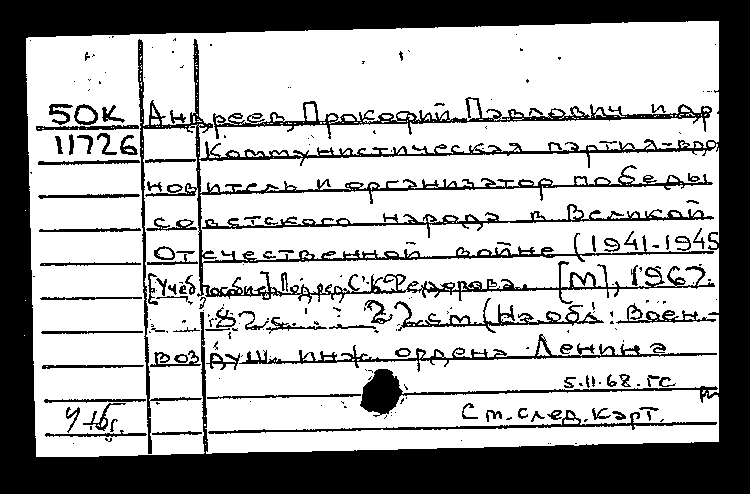 50К Андреев, Прокофий Павлович и др
11726 Коммунистическая партия-вдо
новитель и организатор победы
советского народа в Великой
Отечественной войне (1941-1945
[Учеб. пособие]. Под ред. С.К. Федорова. [М], 1967.
82 с. 22 см (На обл: Воен.-
воздуш. инж. ордена Ленина
5.11.68. ГС
См. след. карт.